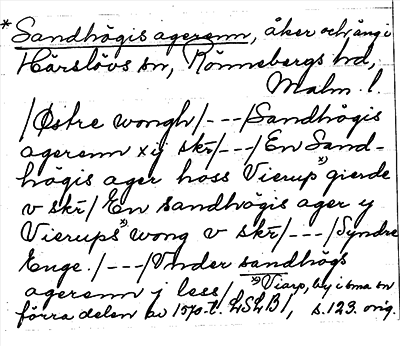 *Sandhögis agerenn, åker och äng i
Härslövs sn, Rönnebergs hd,
Malm. l.
/Østre wongh/---/Sandhögis
agerenn xij skr̄/---/En Sand-
högis ager hoss Vierupˣ⁾ gierde
v skr̄/ En sandhögis ager y
Vierupsˣ⁾ wong v skr̄/---/Syndre
Enge./---/Vnder sandhögs
agerenn j less/ ˣ⁾Viarp, by i sma sn
förra delen av 1570-t. LSLB1, s. 123. orig.